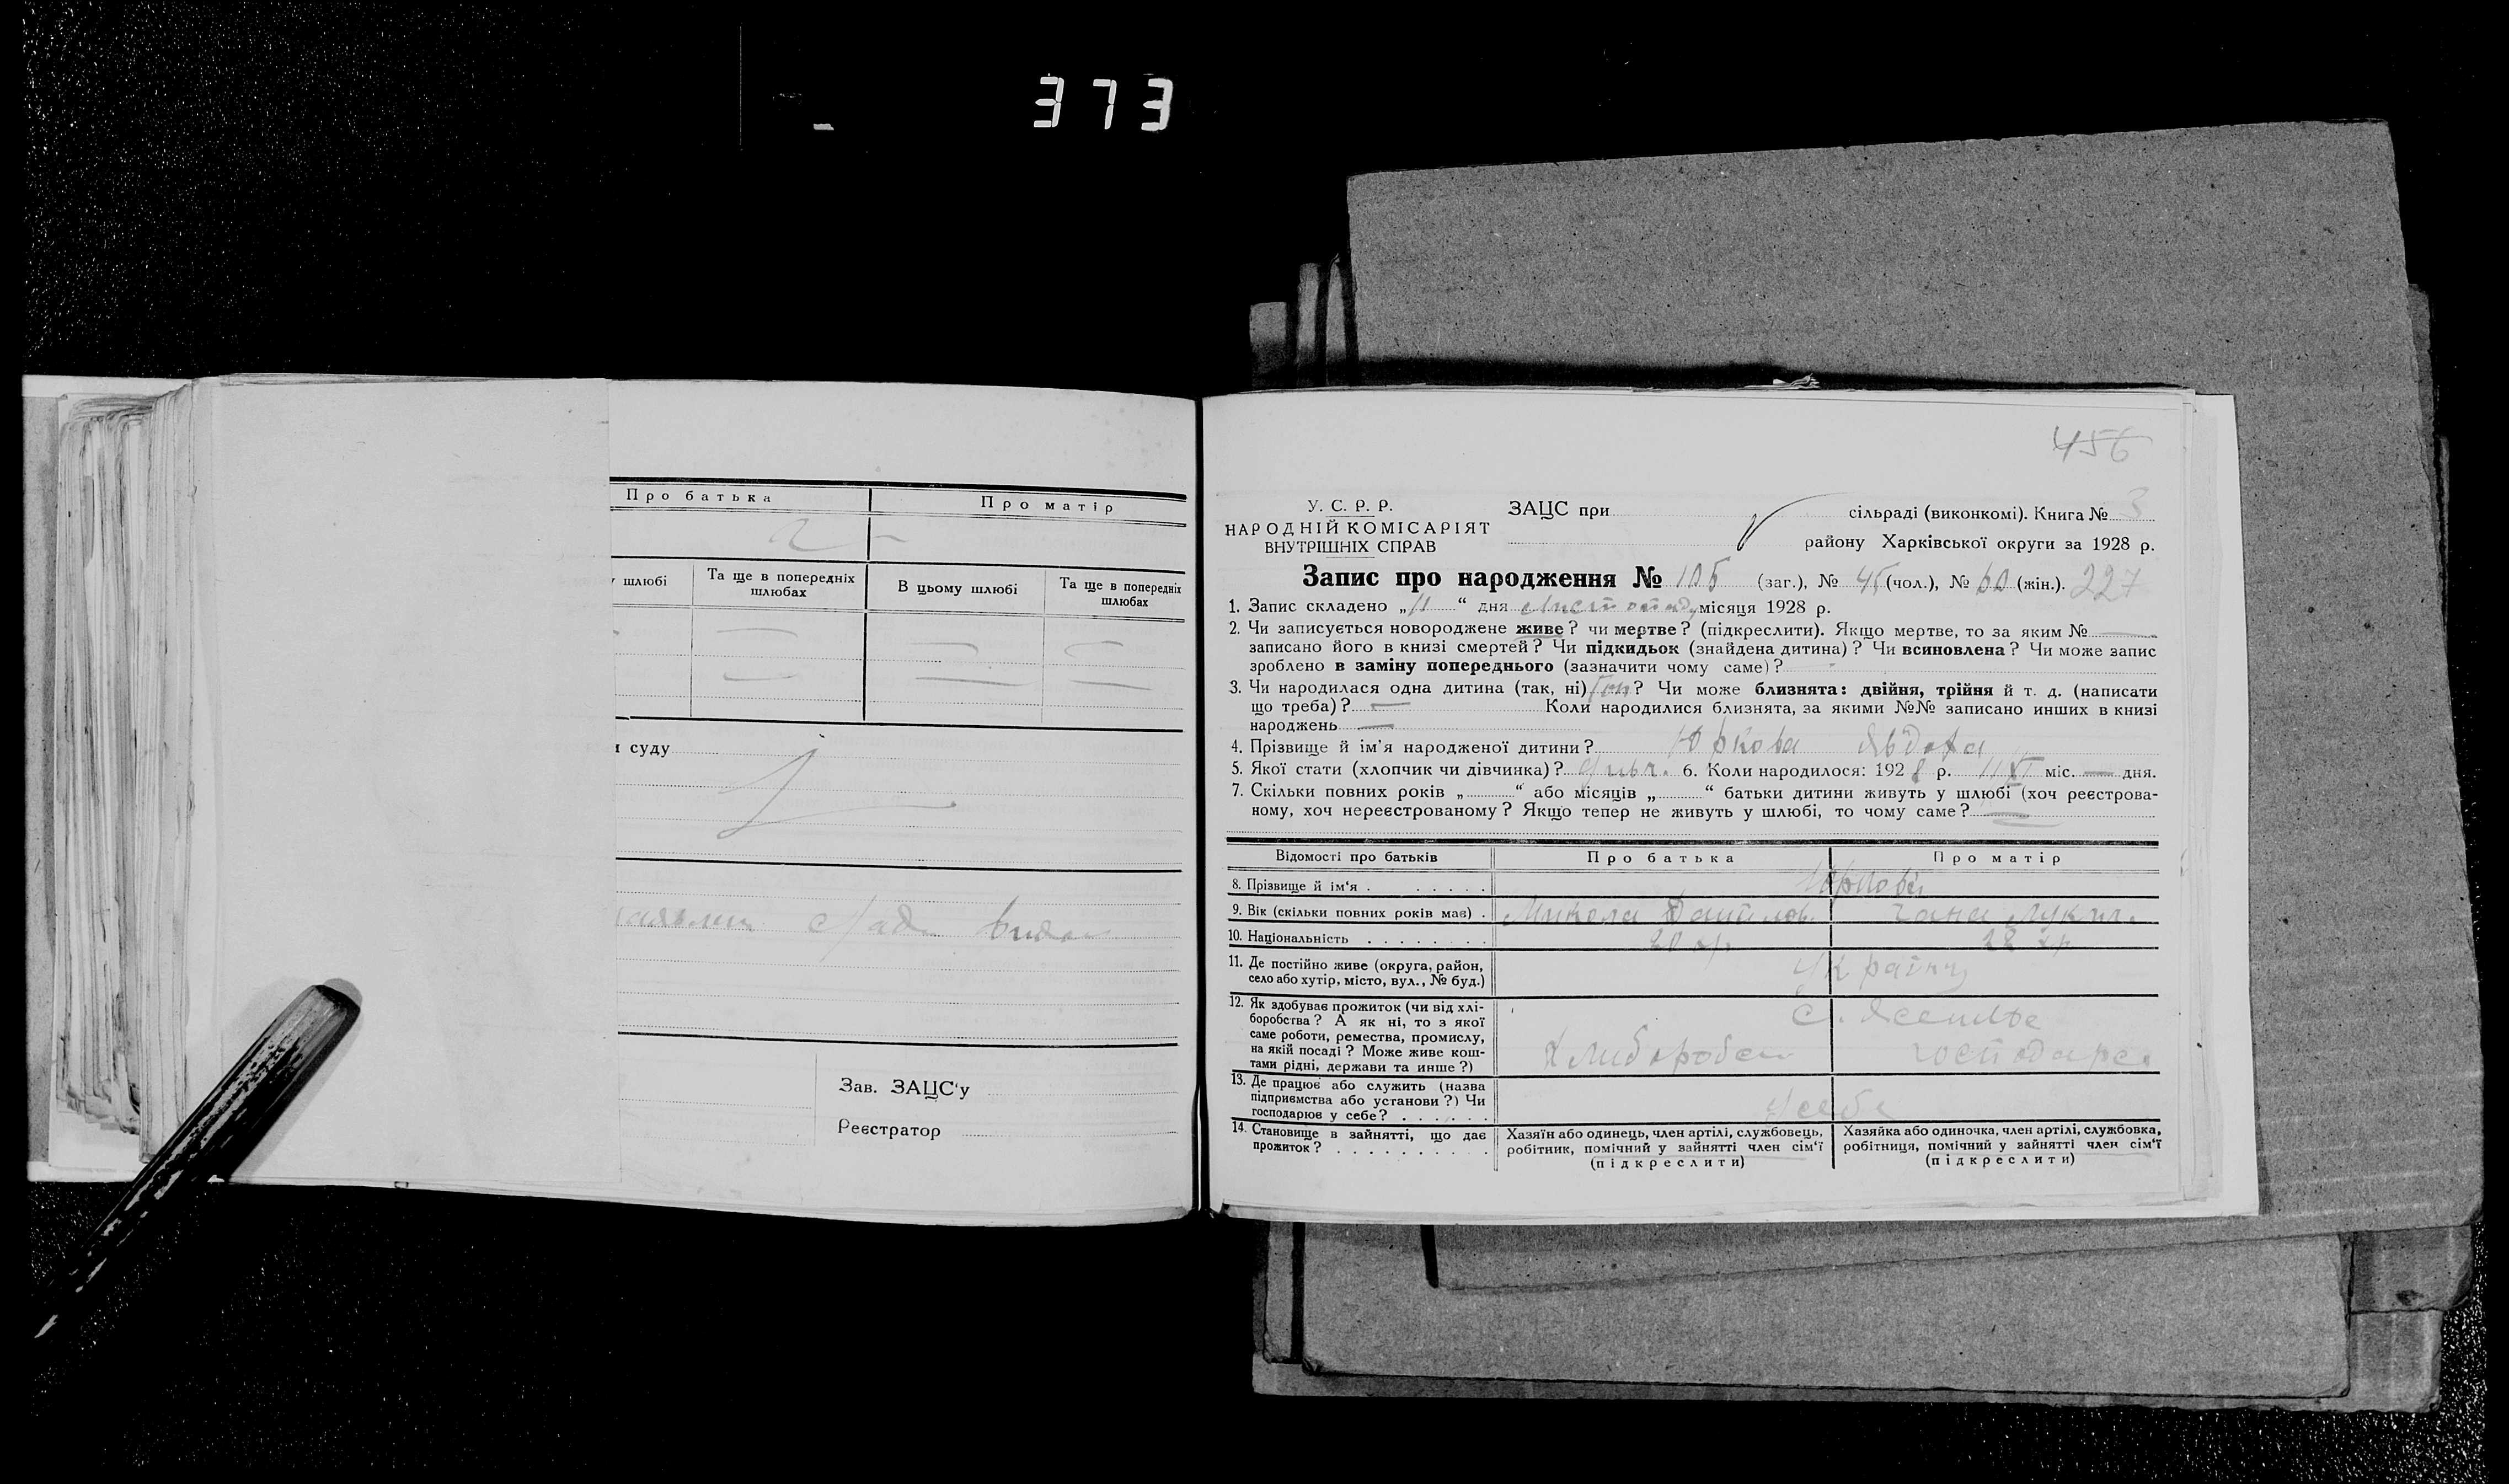 373
Про батька Про матір
шлюбі Та ще в попередніх шлюбах В цьому шлюбі Та ще в попередніх шлюбах
суду
Зав. ЗАЦС'у
Реєстратор
456
У. С. Р. Р.
НАРОДНІЙ КОМІСАРІЯТ
ВНУТРІШНІХ СПРАВ
ЗАЦС при сільраді (виконкомі). Книга № 3
району Харківської округи за 1928 р.
Запис про народження № 105 (заг.), № 45 (чол.), № 60 (жін.). 227
1. Запис складено „11“ дня Листопаду місяця 1928 р.
2. Чи записується новороджене живе? чи мертве? (підкреслити). Якщо мертве, то за яким №
записано його в книзі смертей? Чи підкидьок (знайдена дитина)? Чи всиновлена? Чи може запис
зроблено в заміну попереднього (зазначити чому саме)?
3. Чи народилася одна дитина (так, ні) так? Чи може близнята: двійня, трійня й т. д. (написати
що треба)? — Коли народилися близнята, за якими №№ записано инших в книзі
народжень —
4. Прізвище й ім'я народженої дитини? Юркова Явдоха
5. Якої стати (хлопчик чи дівчинка)? дівч. 6. Коли народилося: 1928 р. 11/XI міс. — дня.
7. Скільки повних років „ “ або місяців „ “ батьки дитини живуть у шлюбі (хоч реєстрова-
ному, хоч нереєстрованому? Якщо тепер не живуть у шлюбі, то чому саме? —
Відомості про батьків Про батька Про матір
8. Прізвище й ім'я
9. Вік (скільки повних років має) Микола Данилов.
10. Національність
11. Де постійно живе (округа, район,
село або хутір, місто, вул., № буд.) Українці
12. Як здобуває прожиток (чи від хлі-
боробства? А як ні, то з якої
саме роботи, ремества, промислу,
на якій посаді? Може живе кош-
тами рідні, держави та инше?)
Хлибороб господарс.
13. Де працює або служить (назва
підприємства або установи?) Чи
господарює у себе? У себе
14. Становище в зайнятті, що дає
прожиток?
Хазяїн або одинець, член артілі, службовець,
робітник, помічний у зайнятті член сім'ї
(підкреслити)
Хазяйка або одиночка, член артілі, службовка,
робітниця, помічний у зайнятті член сім'ї
(підкреслити)